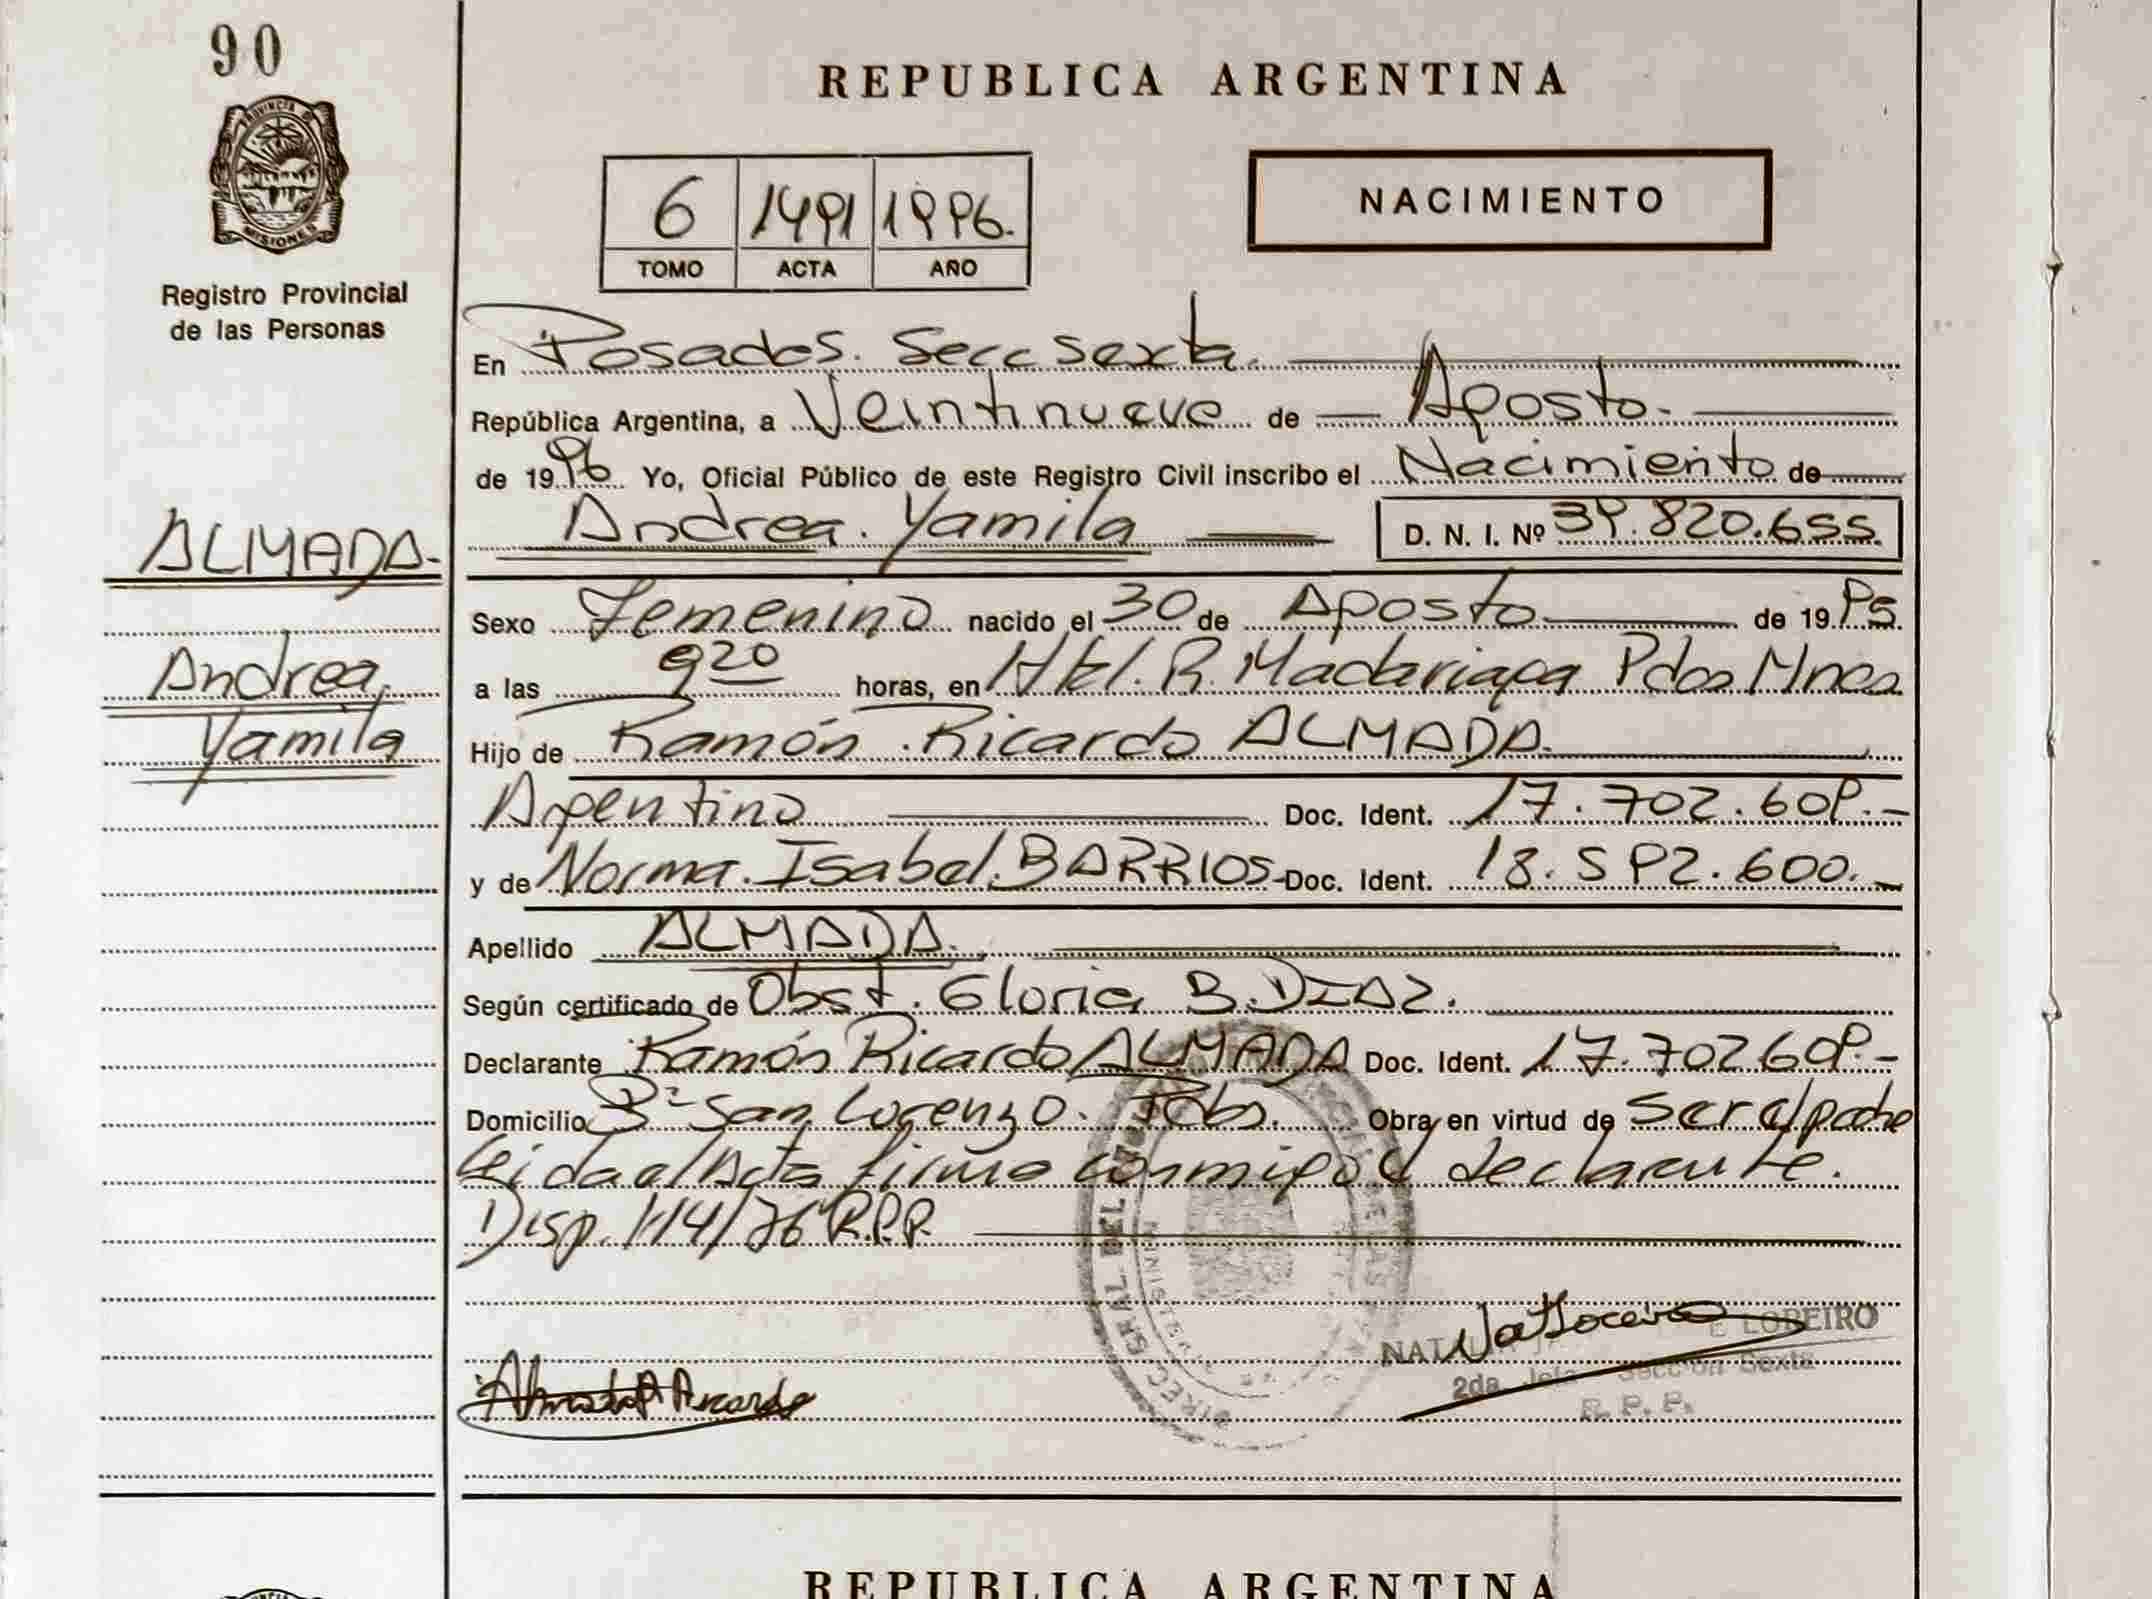 90
REPUBLICA ARGENTINA
PROVINCIA DE
MISIONES
Registro Provincial
de las Personas
NACIMIENTO
6 1491 1996.
TOMO ACTA AÑO
En Posadas. Secc sexta.
República Argentina, a Veintinueve de Agosto.
de 1996 Yo, Oficial Público de este Registro Civil inscribo el Nacimiento de
ALMADA.
Andrea Yamila
Andrea. Yamila D. N. I. Nº 39.820.655.
Sexo Femenino nacido el 30 de Agosto de 1995
a las 9 20 horas, en Htal. R. Madariaga Pdas Mnes
Hijo de Ramón Ricardo ALMADA.
Argentino Doc. Ident. 17.702.609.-
y de Norma. Isabel. BARRIOS- Doc. Ident. 18.592.600.-
Apellido ALMADA.
Según certificado de Obst. Gloria B. DIAZ.
Declarante Ramón Ricardo ALMADA Doc. Ident. 17.702609.-
Domicilio Bº San Lorenzo. Pdas. Obra en virtud de ser el padre
Leida el Acta firma conmigo el declarante.
Disp. 114/76 R.P.P.
LOREIRO
2da. Jefa Sección Sexta
R. P. P.
REPUBLICA ARGENTINA